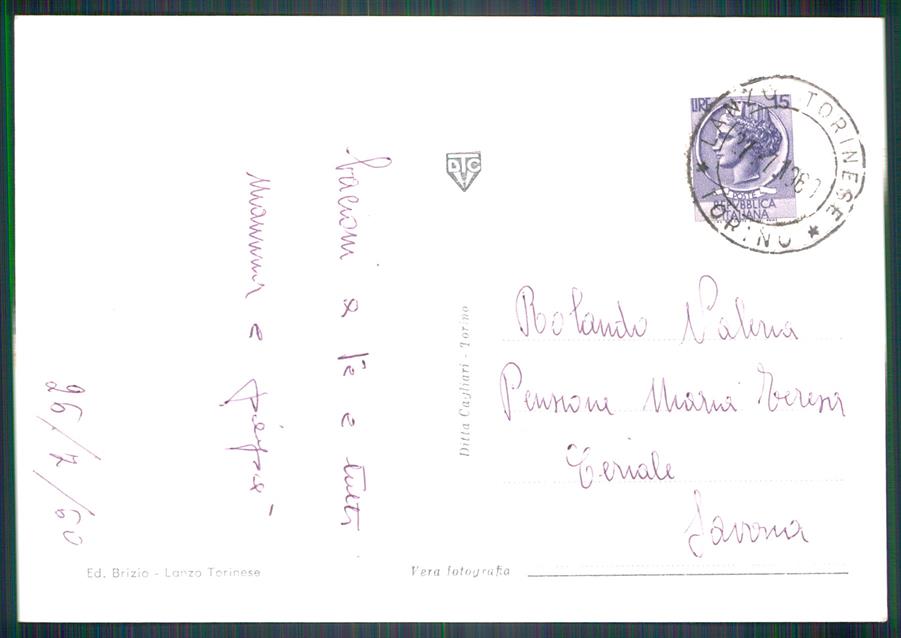 bacioni a te e tutti
mamma e papà
26/7/60
Ed. Brizio - Lanzo Torinese
Vera fotografia
Ditta Cagliari - Torino
DTC
LIRE 15
POSTE
REPVBBLICA
ITALIANA
LANZO TORINESE
* TORINO *
Rolando Valeria
Pensione Maria Teresa
Ceriale
Savona